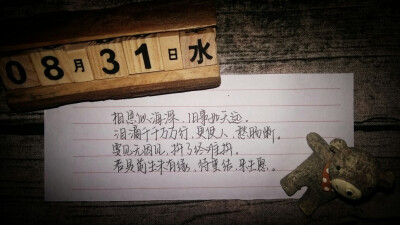 08月31日水
相思似海深，旧事如天远。
泪滴千千万万行，更使人，愁肠断。
要见无因见，拚了终难拚。
若是前生未有缘，待重结，来生愿。